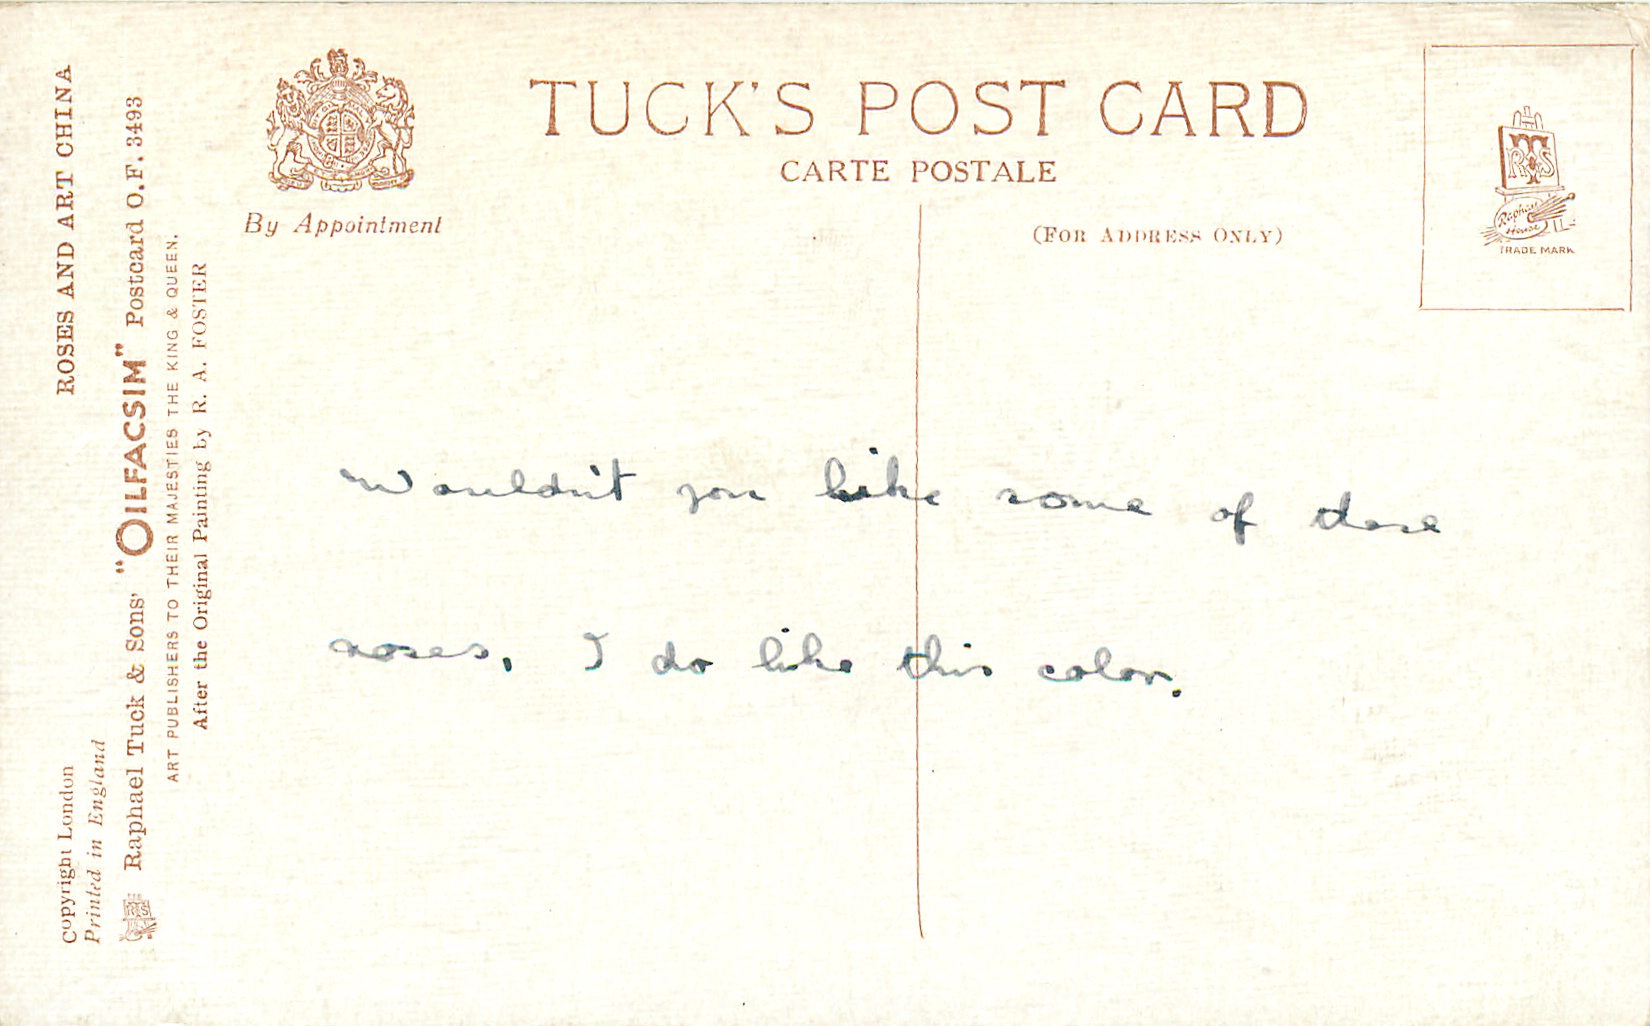 TUCK'S POST CARD
CARTE POSTALE
By Appointment
(FOR ADDRESS ONLY)
R T S
Raphael
House
TRADE MARK
ROSES AND ART CHINA
Copyright London
Printed in England
Raphael Tuck & Sons' "OILFACSIM" Postcard O.F. 3493
ART PUBLISHERS TO THEIR MAJESTIES THE KING & QUEEN.
After the Original Painting by R. A. FOSTER
Wouldn't you like some of these
roses. I do like this color.